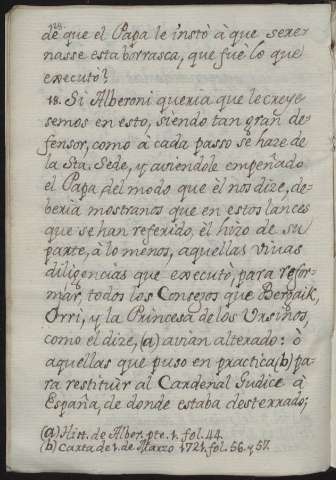 128.
de que el Papa le instò à que sere-
nasse esta borrasca, que fuè lo que
executò?
18. Si Alberoni queria que le creye-
semos en esto, siendo tan gran de-
fensor, como à cada passo se haze de
la Sta. Sede, y aviendole empeñado
el Papa, del modo que èl nos dize, de-
beria mostrarnos que en estos lances
que se han referido, èl hizo de su
parte, à lo menos, aquellas vivas
diligencias que executò, para refor-
mar, todos los Consejos que Bergaik,
Orri, y la Princesa de los Ursinos,
como el dize, (a) avian alterado: ò
aquellas que puso en practica (b) pa-
ra restituir al Cardenal Judice à
España, de donde estaba desterrado;
(a) Hist. de Alber. pte. 1. fol. 44.
(b) Carta de 1. de Marzo 1721. fol. 56. y 57.